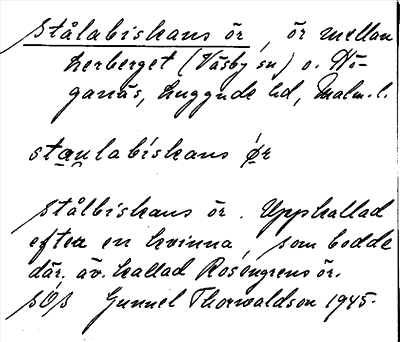 Stålabiskans ör, ör mellan
herberget (Väsby sn) o. Hö-
ganäs, Luggude hd, Malm. l.
staulabiskans ør
Stålbiskans ör. Uppkallad
efter en kvinna, som bodde
där. äv. kallad Rosengrens ör.
SOS Gunnel Thorwaldson 1945.